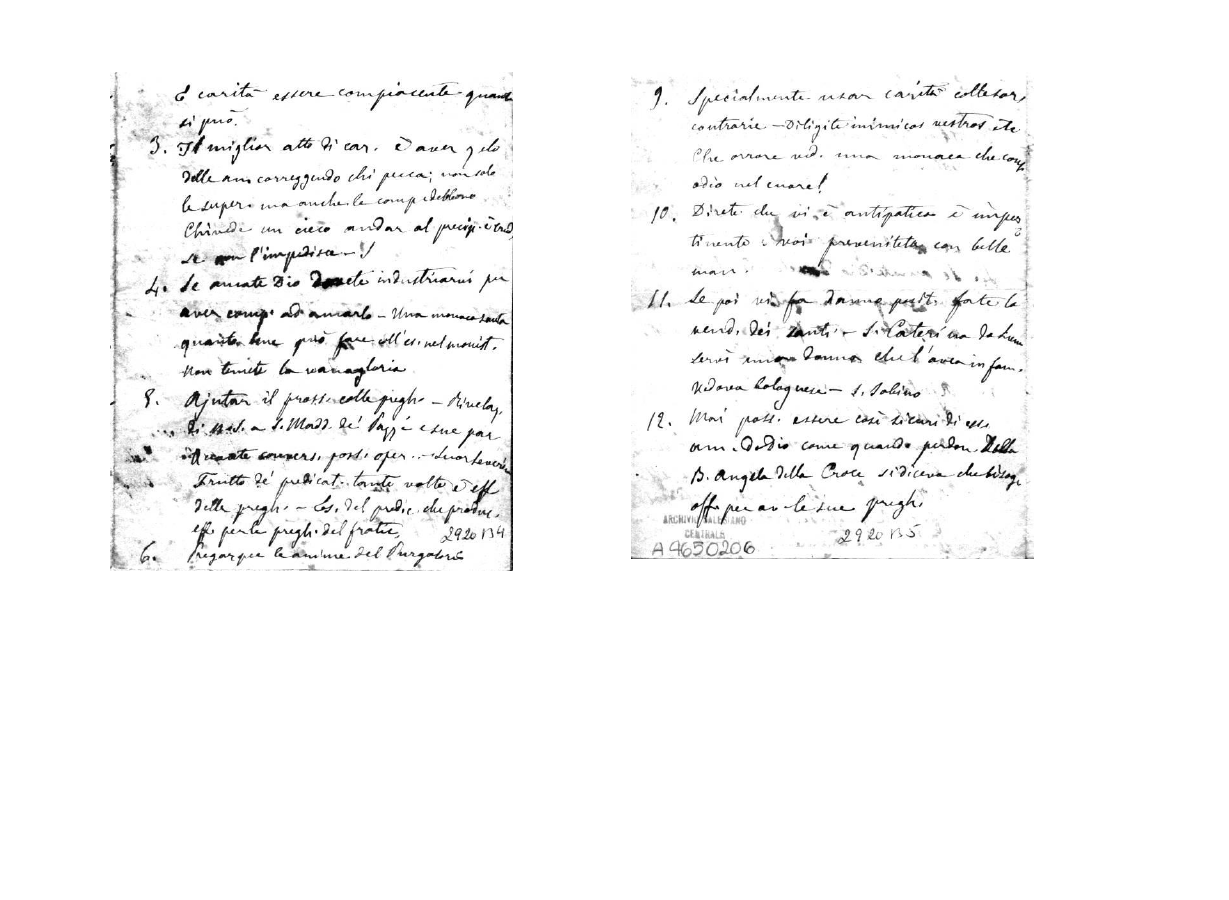 È carità essere compiacente quanto
si può.
3. Il miglior atto di car. è aver zelo
delle am correggendo chi pecca; non solo
le super. ma anche le comp. debbono
Chi vede un cieco andar al precip. è crud,
se non l'impedisce - !
4. Se amate Dio dovete industriarvi per
aver comp. ad amarlo - Una monaca santa
quanto bene può fare coll'es. nel monist.
Non temete la vanagloria
5. Ajutar il pross. colle pregh - Rivelaz.
di N.S. a S. Madd. de' Pazzi e sue par
conver. poss. oper. - Suor
Frutto de' predicat. tante volte è eff
delle pregh. - Es. del predic. che produc.
eff. per le pregh. del fratic.
2920 B4
6. Pregar per le anime del Purgatorio
9. Specialmente usar carità colle sor,
contrarie - Diligite inimicos vestros etc
Che orrore ved. una monaca che cons
odio nel cuore!
10. Direte che vi è antipatica è imper
tinente e voi prevenitela con belle
man.
11. Se poi vi fa danno posit. fate la
vend. dei santi - S. Caterina da Sien
servì una donna che l'avea infam.
Vedova bolognese - S. Sabino
12. Mai poss. essere così sicuri di ess.
am. da Dio come quando perdon. Della
B. Angela della Croce si diceva che bisog
off. per av. le sue pregh.
ARCHIVIO SALESIANO
CENTRALE
A 4630206
2920 B5